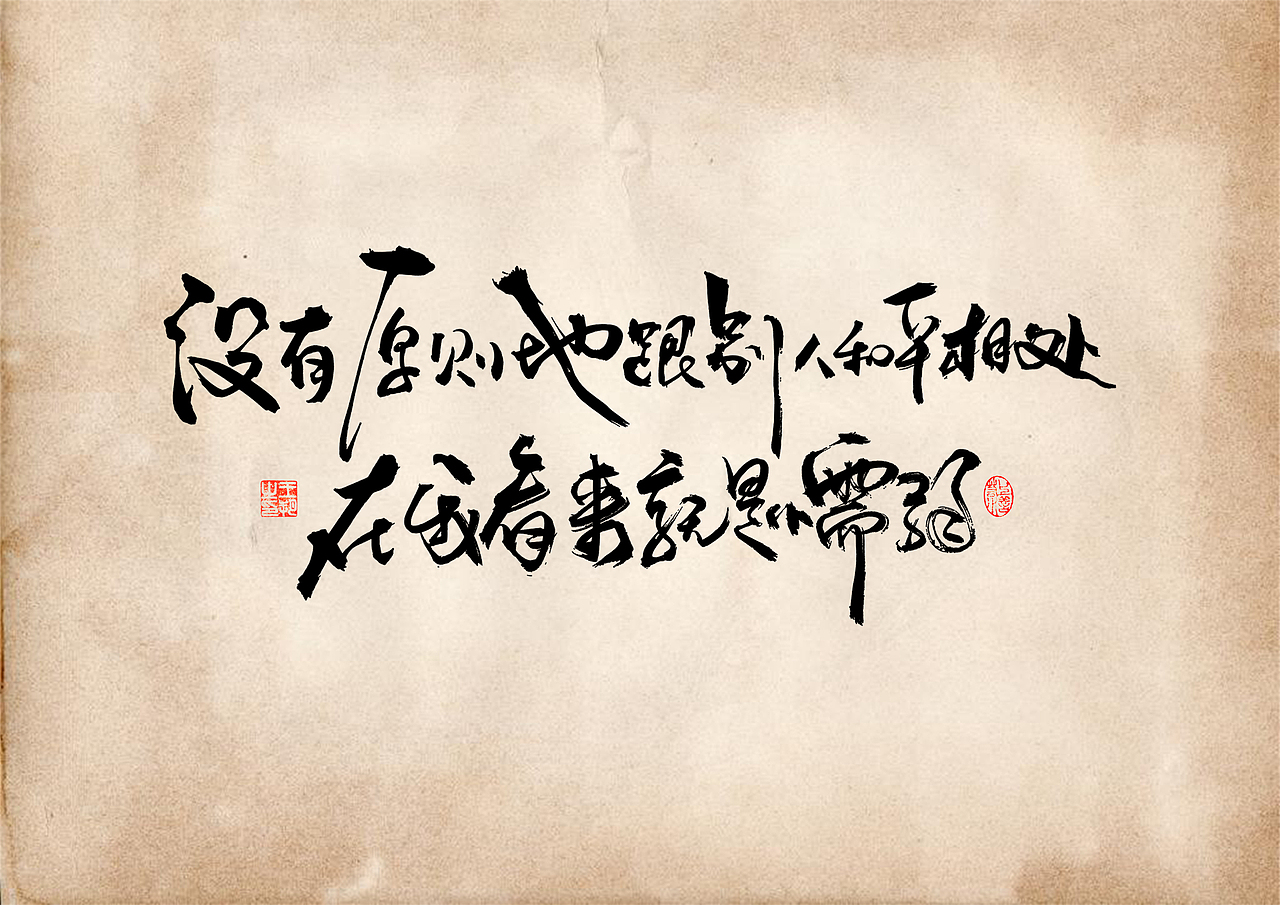 没有原则地跟别人和平相处
在我看来就是懦弱